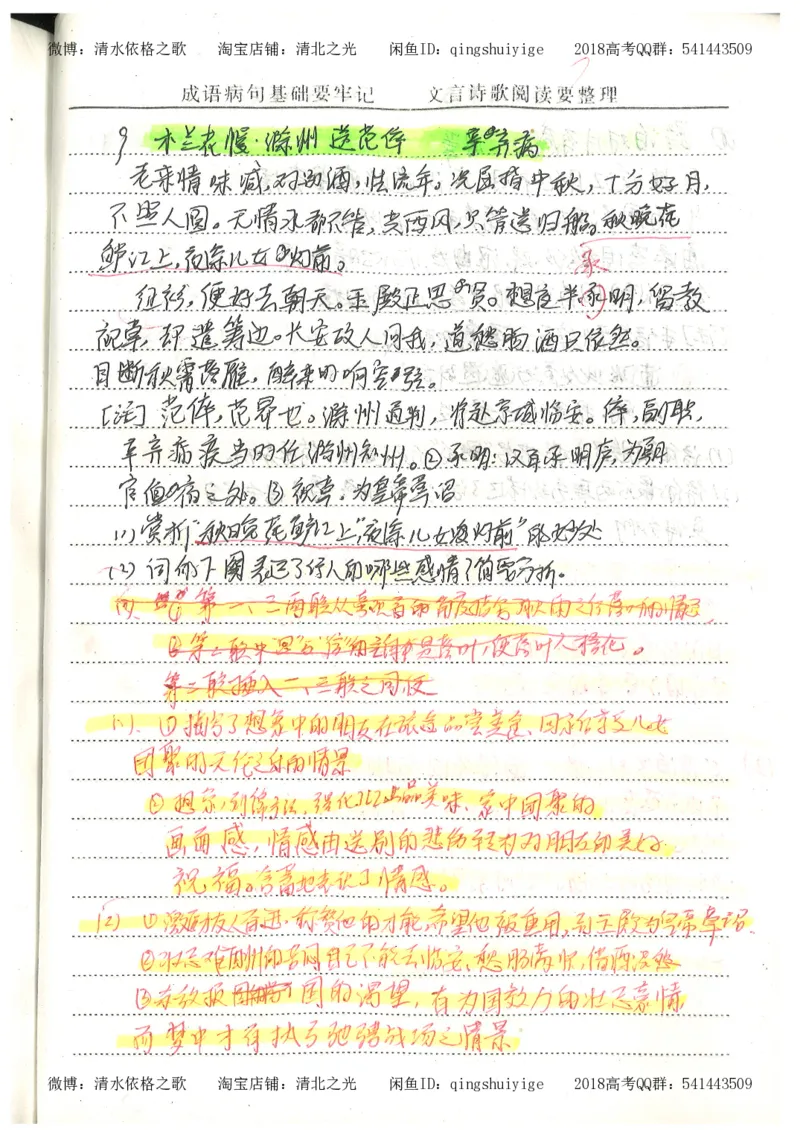 微博：清水依格之歌 淘宝店铺：清北之光 闲鱼ID：qingshuiyige 2018高考QQ群：541443509
成语病句基础要牢记 文言诗歌阅读要整理
9 木兰花慢·滁州送范倅 辛弃疾
老来情味减，对别酒，怯流年。况屈指中秋，十分好月，
不照人圆。无情水都不管，共西风，只管送归船。秋晚莼
鲈江上，夜深儿女灯前。
承
征衫，便好去朝天。玉殿正思贤。想夜半承明，留教
视草，却遣筹边。长安故人问我，道愁肠殢酒只依然。
目断秋霄落雁，醉来时响空弦。
［注］范倅，范昂也。滁州通判，将赴京城临安。倅，副职，
辛弃疾当时任滁州知州。②承明：汉有承明庐，为朝
官值宿之处。③视草：为皇帝草诏
(1) 赏析"秋晚莼鲈江上，夜深儿女灯前"的妙处
(2) 词的下阕表达了作人的哪些感情？简要分析。
第二联插入一、三联之间使
(1). ①描写了想象中的朋友在旅途品尝美食、回家后享受儿女
团聚的天伦之乐的情景
②想象，
画面感，情感由送别的悲伤转为对朋友的美好
祝福。含蓄地表达了情感。
(2) ①激励友人奋进，称赞他的才能，希望他被重用，到玉殿为皇帝草诏
②壮志难酬的苦闷自己不能去临安，愁肠满怀，借酒浇愁
③杀敌报国的渴望，有为国效力的壮志豪情
而梦中才有执弓驰骋战场之情景
微博：清水依格之歌 淘宝店铺：清北之光 闲鱼ID：qingshuiyige 2018高考QQ群：541443509